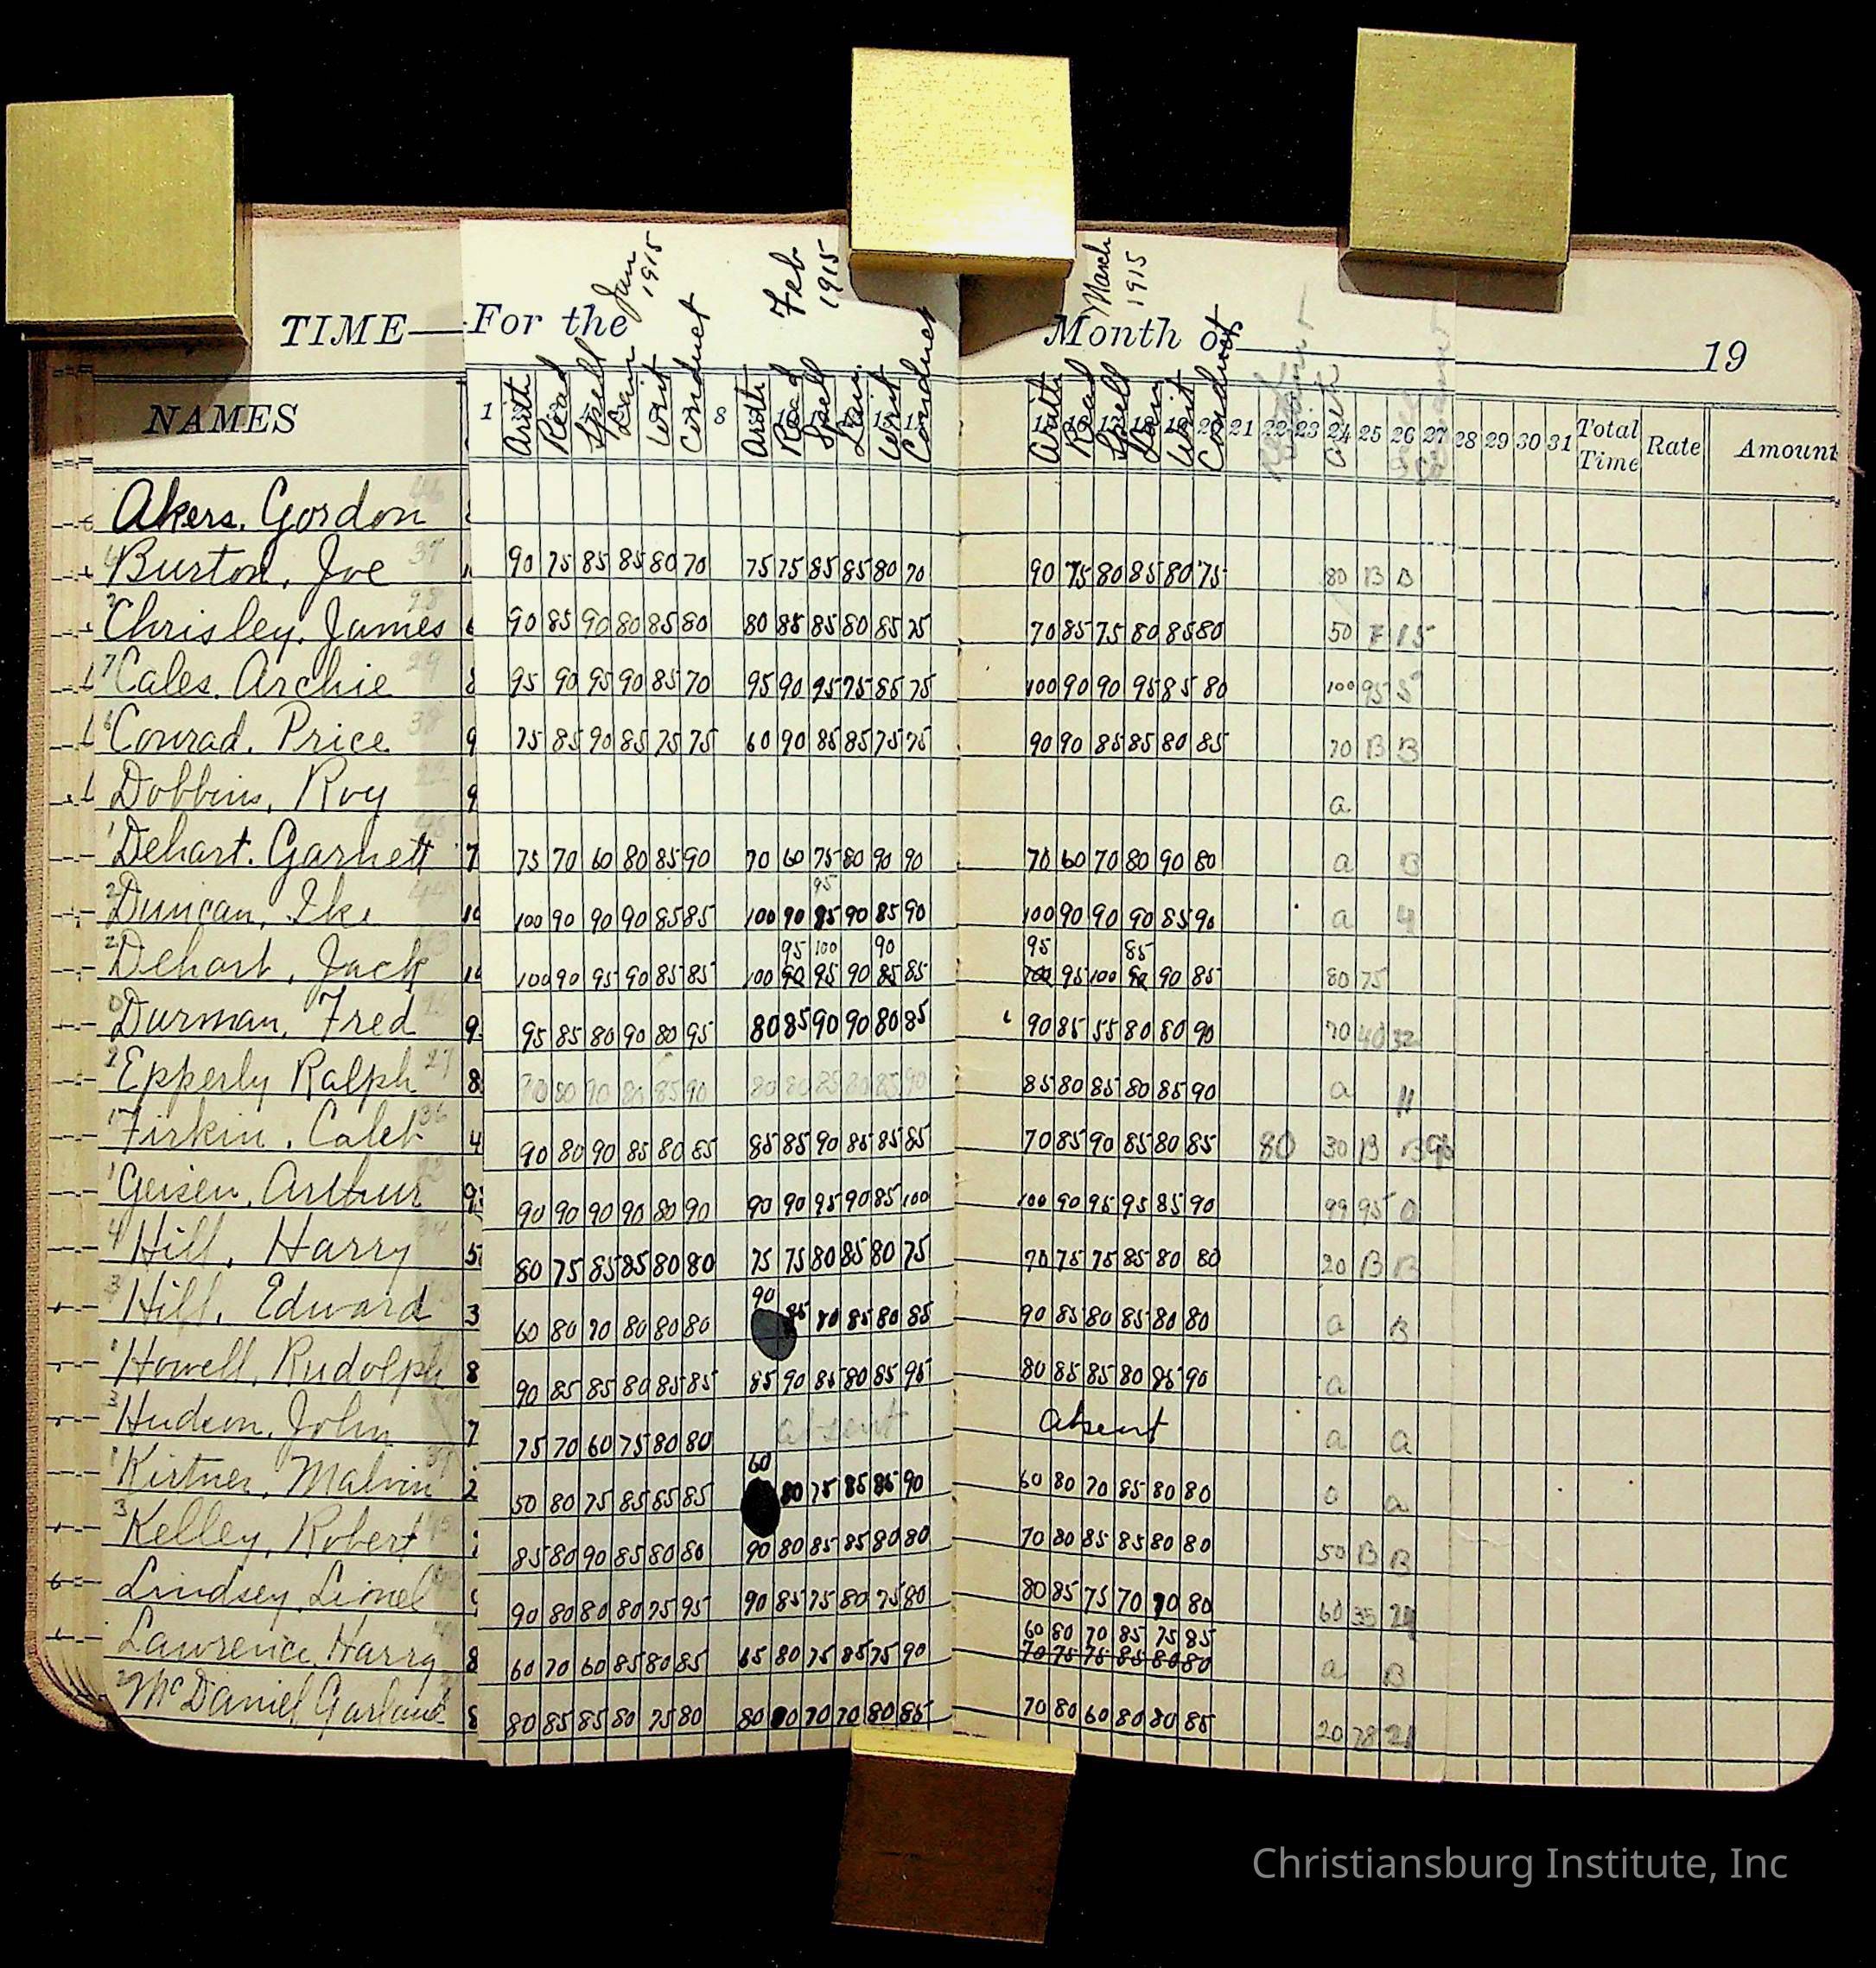 TIME— For the Month of 19
Jan 1915 Feb 1915 March 1915
NAMES 1 Arith Read Spell Lan Writ Conduct 8 Arith Read Spell Lan Writ Conduct Arith Read Spell Lan Writ Conduct 21 22 23 24 25 26 27 28 29 30 31 Total Time Rate Amount
Akers, Gordon
Burton, Joe 37 90 75 85 85 80 70 75 75 85 85 80 70 90 75 80 85 80 75 80 B B
Chrisley, James 28 90 85 90 80 85 80 80 85 85 80 85 75 70 85 75 80 85 80 50 F 15
7 Cales, Archie 29 95 90 95 90 85 70 95 90 95 75 85 75 100 90 90 95 85 80 100 95 5
6 Conrad, Price 38 9 75 85 90 85 75 75 60 90 85 85 75 75 90 90 85 85 80 85 70 B B
Dobbins, Roy 9 a
1 Dehart, Garnett 7 75 70 60 80 85 90 70 60 75 80 90 90 70 60 70 80 90 80 a B
95
2 Duncan, Ike 10 100 90 90 90 85 85 100 90 85 90 85 90 100 90 90 90 85 90 a 4
95 100 90 95 85
2 Dehart, Jack 10 100 90 95 90 85 85 100 90 95 90 85 85 100 95 100 90 90 85 80 75
Durman, Fred 9 95 85 80 90 80 95 80 85 90 90 80 85 90 85 55 80 80 90 70 40 32
2 Epperly Ralph 27 8 90 80 90 80 85 90 80 80 85 80 85 90 85 80 85 80 85 90 a 11
1 Firkin, Caleb 36 4 90 80 90 85 80 85 85 85 90 85 85 85 70 85 90 85 80 85 80 30 B B
1 Geisen, Arthur 9 90 90 90 90 80 90 90 90 95 90 85 100 100 90 95 95 85 90 99 95 0
4 Hill, Harry 5 80 75 85 85 80 80 75 75 80 85 80 75 70 75 75 85 80 80 20 B B
90
3 Hill, Edward 3 60 80 70 80 80 80 85 70 85 80 85 90 85 80 85 80 80 a B
1 Howell, Rudolph 8 90 85 85 80 85 85 85 90 85 80 85 95 80 85 85 80 85 90 a
3 Hudson, John 7 75 70 60 75 80 80 absent absent a a
60
1 Kirtner, Malvin 2 50 80 75 85 85 85 80 75 85 85 90 60 80 70 85 80 80 a a
3 Kelley, Robert 85 80 90 85 80 80 90 80 85 85 80 80 70 80 85 85 80 80 50 B B
Lindsey, Lionel 90 80 80 80 75 95 90 85 75 80 75 80 80 85 75 70 70 80 60 35 24
60 80 70 85 75 85
Lawrence, Harry 8 60 70 60 85 80 85 65 80 75 85 75 90 70 75 75 85 80 80 a B
2 McDaniel Garland 8 80 85 85 80 75 80 80 70 70 80 85 70 80 60 80 80 85 20 78 21
Christiansburg Institute, Inc